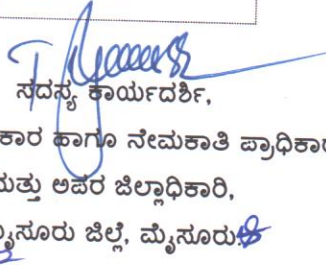 ಸದಸ್ಯ ಕಾರ್ಯದರ್ಶಿ,
ಕಾರ ಹಾಗೂ ನೇಮಕಾತಿ ಪ್ರಾಧಿಕಾರ
ಮತ್ತು ಅಪರ ಜಿಲ್ಲಾಧಿಕಾರಿ,
ಮೈಸೂರು ಜಿಲ್ಲೆ, ಮೈಸೂರು.